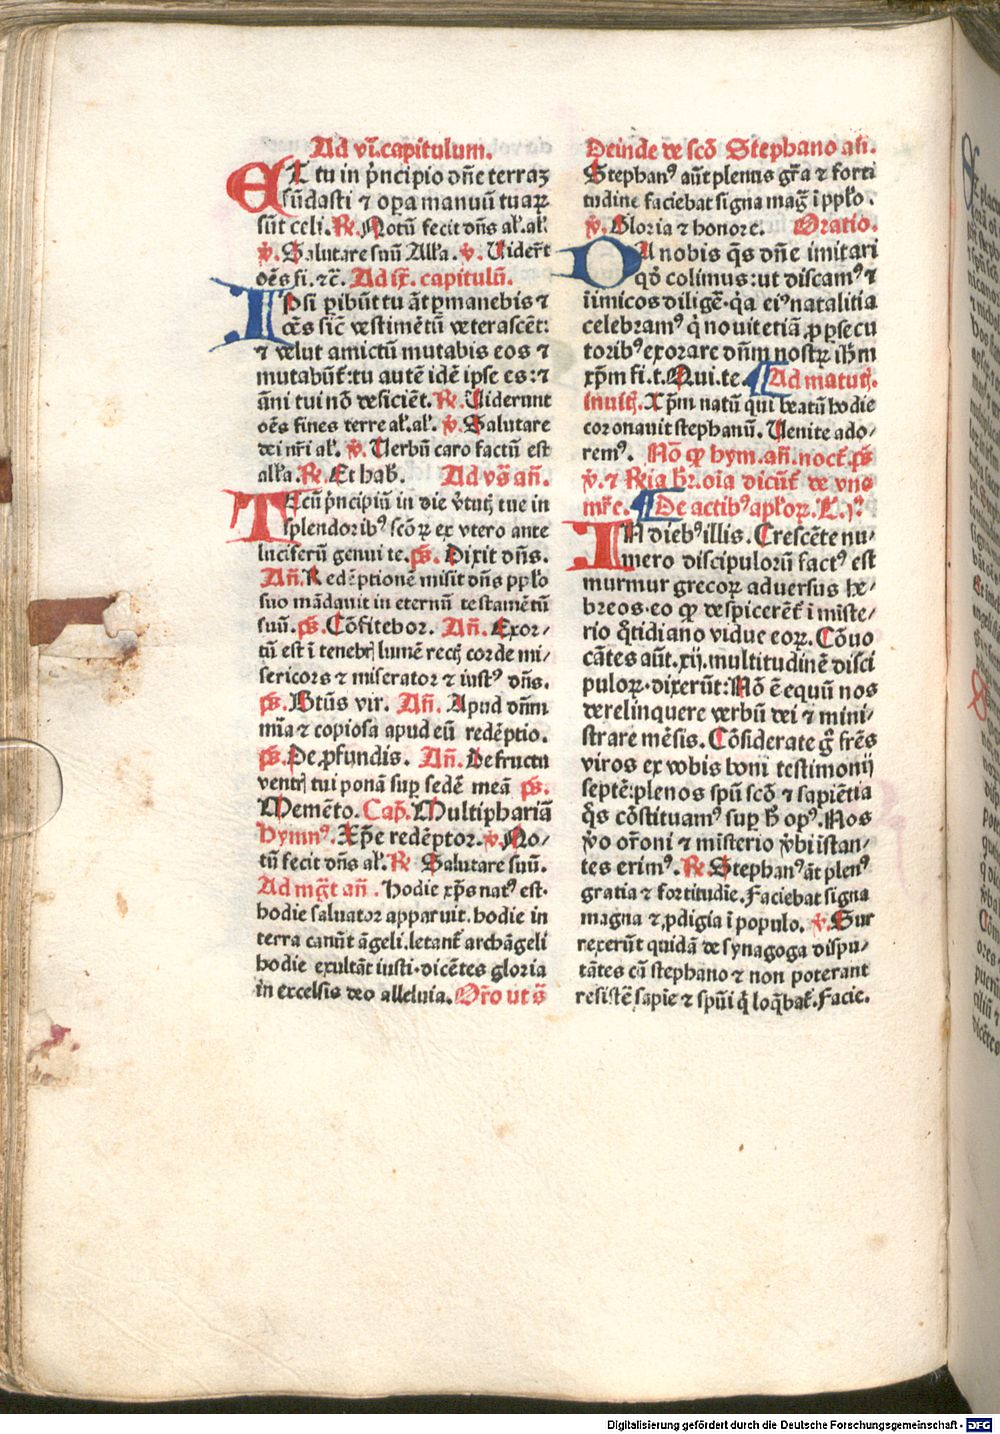 Ad vi. capitulum.
ET tu in p̄ncipio dn̄e terraʒ
fūdasti ⁊ oꝑa manuū tuaꝝ
sūt celi. R̄. Notū fecit dn̄s al'. al'.
v̄. Salutare suū All'a. v̄. Viderūt
oēs fi. ⁊c̄. Ad ix. capitulū.
IPsi ꝑibūt tu āt ꝑmanebis ⁊
oēs sic̄ vestimētū veterascēt:
⁊ velut amictū mutabis eos ⁊
mutabūt᷑: tu autē idē ipse es: ⁊
āni tui nō deficiēt. R̄. Viderunt
oēs fines terre al'. al'. v̄. Salutare
dei nr̄i al'. v̄. Verbū caro factū est
all'a. R̄. Et hab̄. Ad vs̄ an̄.
TEcū p̄ncipiū in die v̄tutꝭ tue in
splendoribꝰ scōꝝ ex vtero ante
luciferū genui te. ps̄. Dixit dn̄s.
An̄. Redēptionē misit dn̄s ppl'o
suo mādauit in eternū testamētū
suū. ps̄. Cōfitebor. An̄. Exor⸗
tū est ī tenebrꝭ lumē rectꝭ corde mi⸗
sericors ⁊ miserator ⁊ iustꝰ dn̄s.
ps̄. Btūs vir. An̄. Apud dn̄m
mīa ⁊ copiosa apud eū redēptio.
ps̄. De ꝓfundis. An̄. De fructu
ventrꝭ tui ponā suꝑ sedē meā ps̄.
Memēto. Cap̄. Multiphariā
hymnꝰ. Xp̄e redēptor. v̄. No⸗
tū fecit dn̄s al'. R̄ Salutare suū.
Ad mḡt an̄. Hodie xp̄s natꝰ est.
hodie saluator apparuit. hodie in
terra canūt āgeli. letant᷑ archāgeli
hodie exultāt iusti. dicētes gloria
in excelsis deo alleluia. Or̄o ut s̄
Deinde de scō Stephano an̄.
Stephanꝰ aūt plenus gr̄a ⁊ forti
tudine faciebat signa maḡ ī ppl'o.
v̄. Gloria ⁊ honore. Oratio.
DA nobis q̄s dn̄e imitari
qd̄ colimus: ut discamꝰ ⁊
iimicos diligē. q̄a eiꝰ natalitia
celebramꝰ q̇ nouit etiā ꝓ ꝑsecu
toribꝰ exorare dn̄m nostꝝ ih̄m
xp̄m fi. t. Qui. te. Ad matutꝭ.
Inuitꝭ. Xp̄m natū qui beatū hodie
coronauit stephanū. Venite ado⸗
remꝰ. Nō ꝙ hym. an̄. noct᷑. ps̄
v̄. ⁊ R̄ia hr̄. oīa dicūt᷑ de vno
mr̄e. De actibꝰ apl'oꝝ. L. jꝰ.
IN diebꝰ illis. Crescēte nu⸗
mero discipulorū factꝰ est
murmur grecoꝝ aduersus he⸗
breos. eo ꝙ despicerēt᷑ ī miste⸗
rio q̄tidiano vidue eoꝝ. Cōuo
cātes aūt. xij. multitudinē disci
puloꝝ. dixerūt: Nō ē equū nos
derelinquere verbū dei ⁊ mini⸗
strare mēsis. Cōsiderate g̊ frēs
viros ex vobis boni testimonij
septē: plenos spū scō ⁊ sapiētia
q̄s cōstituamꝰ suꝑ h̄ opꝰ. Nos
v̊o or̄oni ⁊ misterio v̄bi istan⸗
tes erimꝰ. R̄. Stephanꝰ āt plenꝰ
gratia ⁊ fortitudīe. Faciebat signa
magna ⁊ ꝓdigia ī populo. v̄. Sur
rexerūt quidā de synagoga dispu⸗
tātes cū stephano ⁊ non poterant
resistē sapīe ⁊ spūi q̇ loq̄bat᷑. Facie.
Digitalisierung gefördert durch die Deutsche Forschungsgemeinschaft - DFG